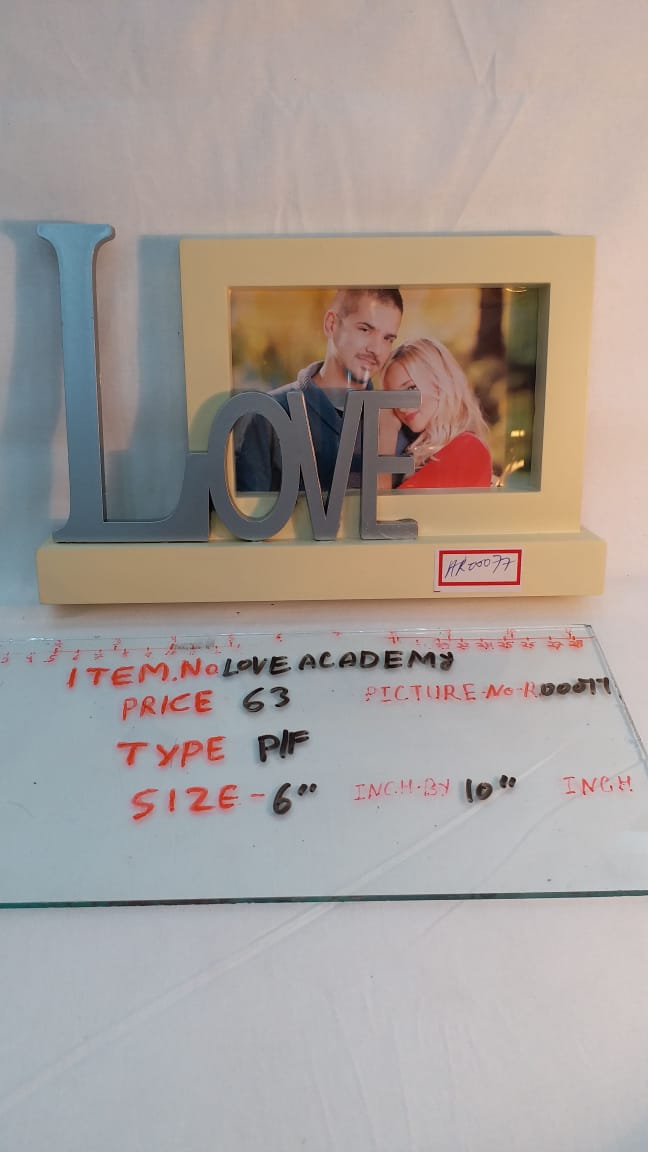 LOVE
AR00077
ITEM.No LOVE ACADEMY
PRICE 63 PICTURE-No-R00077
TYPE P/F
SIZE-6" INCH-BY 10" INCH